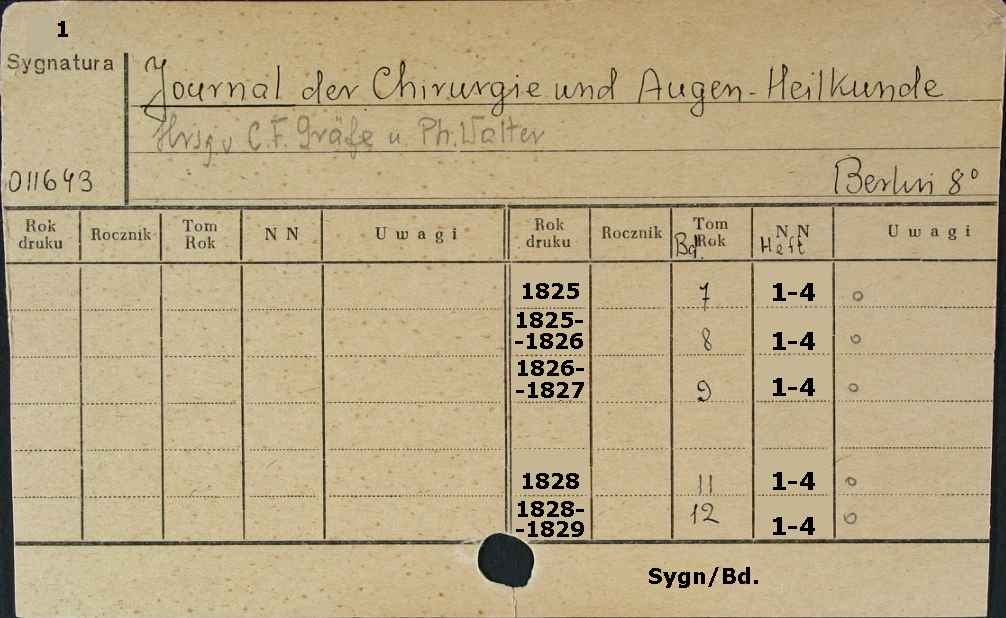 1
Sygnatura
Journal der Chirurgie und Augen-Heilkunde
Hrsg. v C.F. Gräfe u. Ph. Walter
011643
Berlin 8°
Rok druku Rocznik Tom Rok N N Uwagi Rok druku Rocznik Bd. Tom Rok N N Heft Uwagi
1825 7 1-4 o
1825-
-1826 8 1-4 o
1826-
-1827 9 1-4 o
1828 11 1-4 o
1828-
-1829 12 1-4 o
Sygn/Bd.